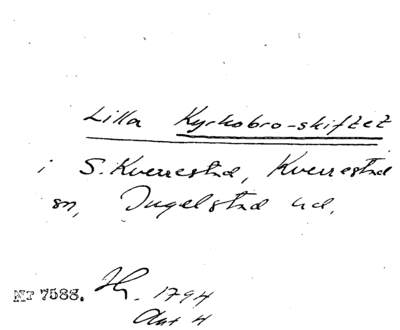 Lilla Kyrkobro-skiftet
i S. Kverrestad, Kverrestad
sn, Ingelstad hd,
Nr 7588. H. 1794
Akt 4